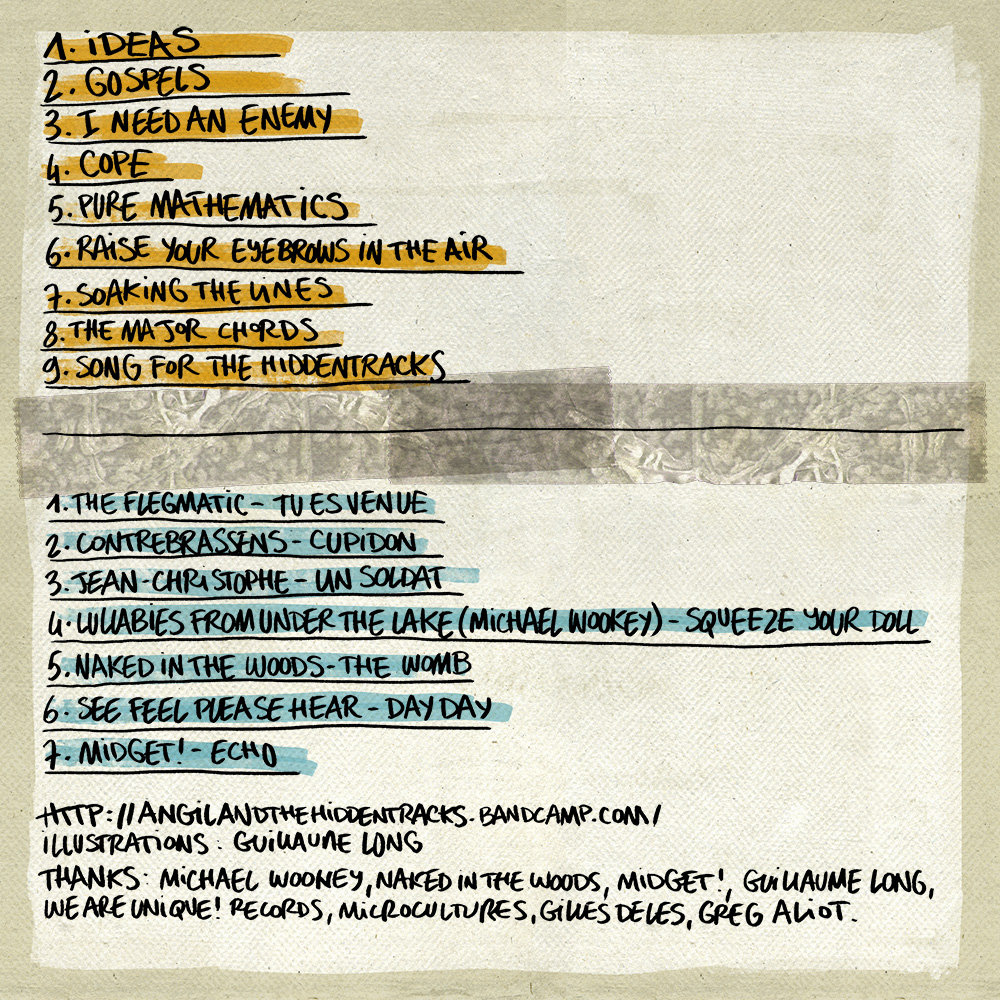 1. IDEAS
2. GOSPELS
3. I NEED AN ENEMY
4. COPE
5. PURE MATHEMATICS
6. RAISE YOUR EYEBROWS IN THE AIR
7. SOAKING THE LINES
8. THE MAJOR CHORDS
9. SONG FOR THE HIDDENTRACKS
1. THE FLEGMATIC - TU ES VENUE
2. CONTREBRASSENS - CUPIDON
3. JEAN-CHRISTOPHE - UN SOLDAT
4. LULLABIES FROM UNDER THE LAKE (MICHAEL WOOKEY) - SQUEEZE YOUR DOLL
5. NAKED IN THE WOODS - THE WOMB
6. SEE FEEL PLEASE HEAR - DAY DAY
7. MIDGET! - ECHO
HTTP://ANGILANDTHEHIDDENTRACKS.BANDCAMP.COM/
ILLUSTRATIONS : GUILLAUME LONG
THANKS: MICHAEL WOOKEY, NAKED IN THE WOODS, MIDGET!, GUILLAUME LONG,
WE ARE UNIQUE! RECORDS, MICROCULTURES, GILLES DELES, GREG ALIOT.